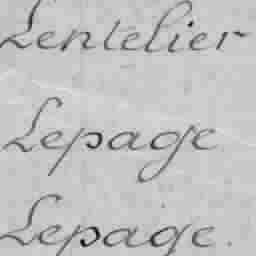 Lentelier
Lepage
Lepage.